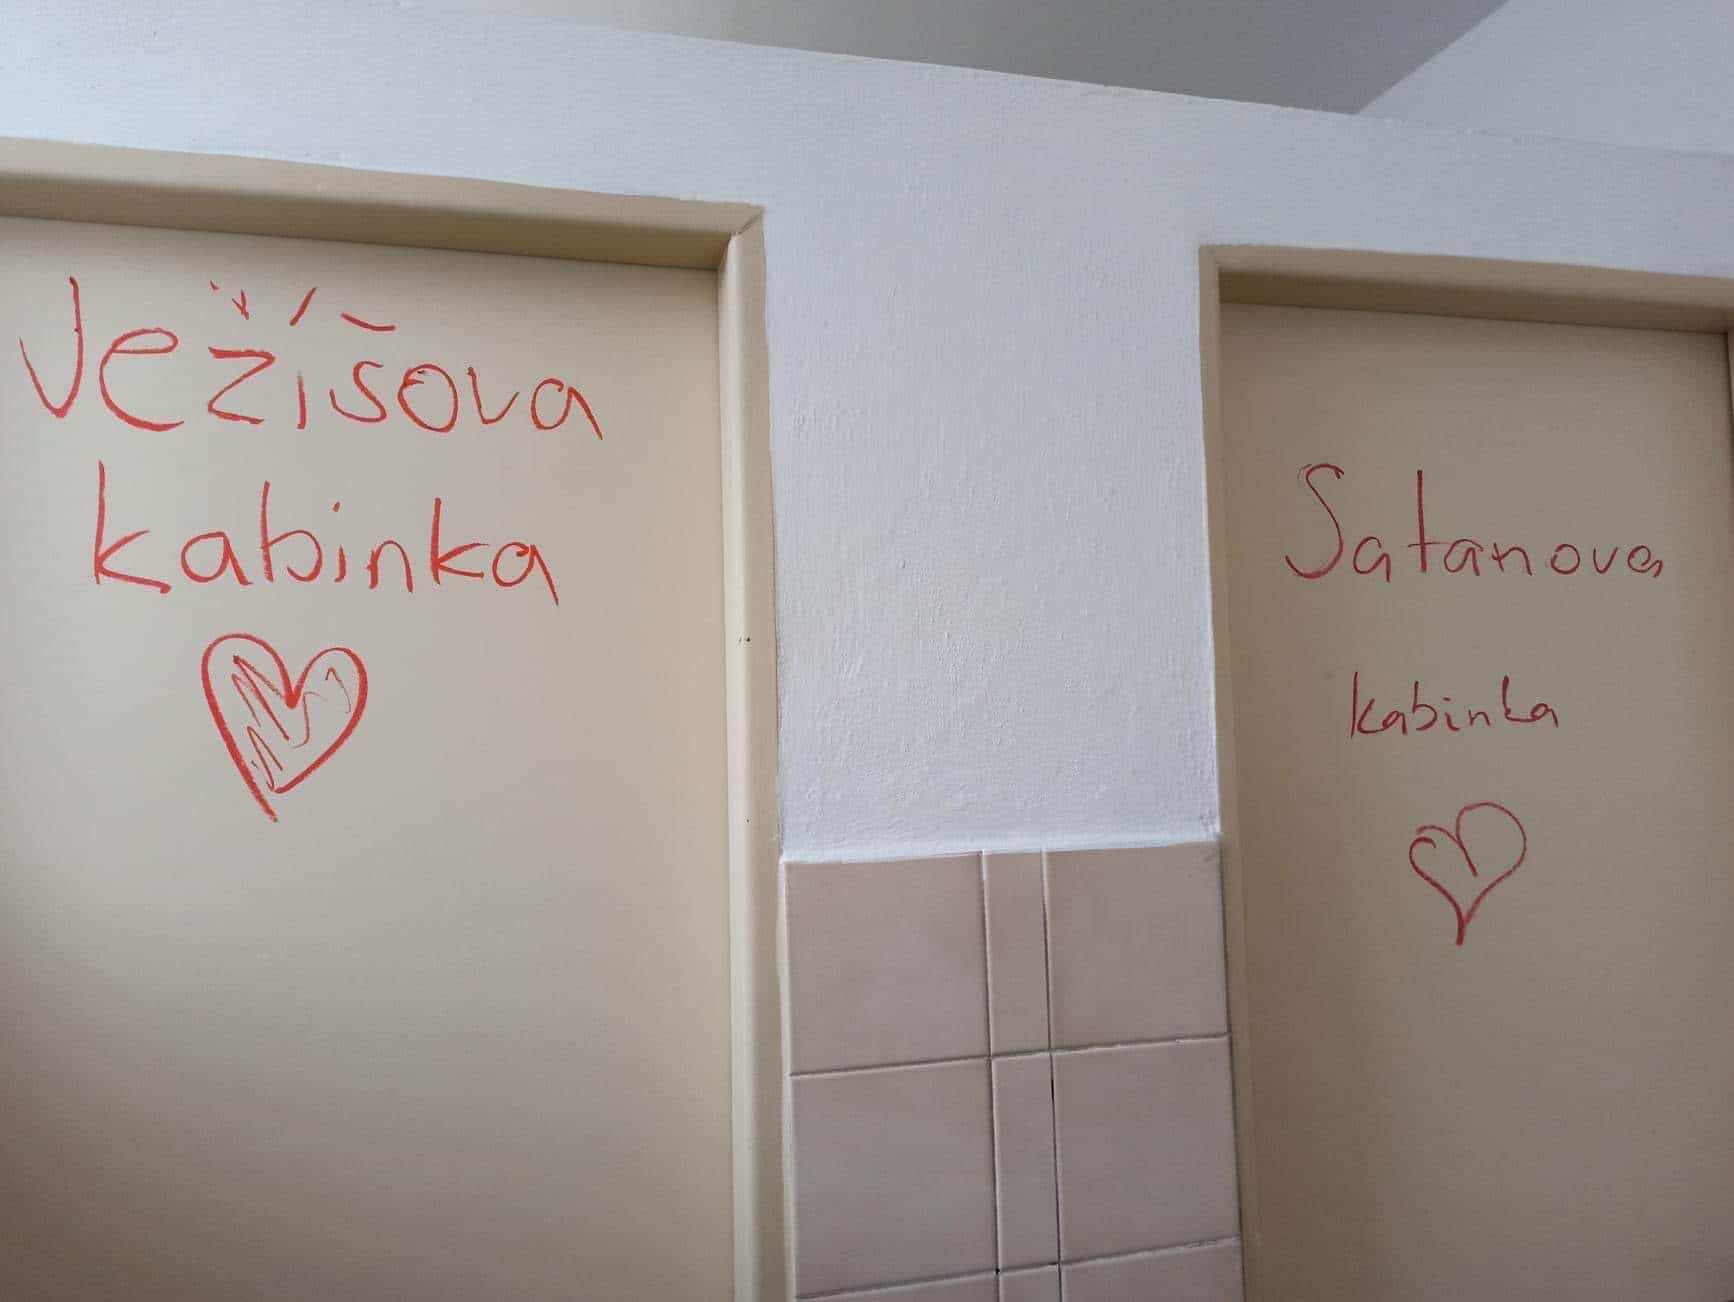 Ježíšova
kabinka
Satanova
kabinka